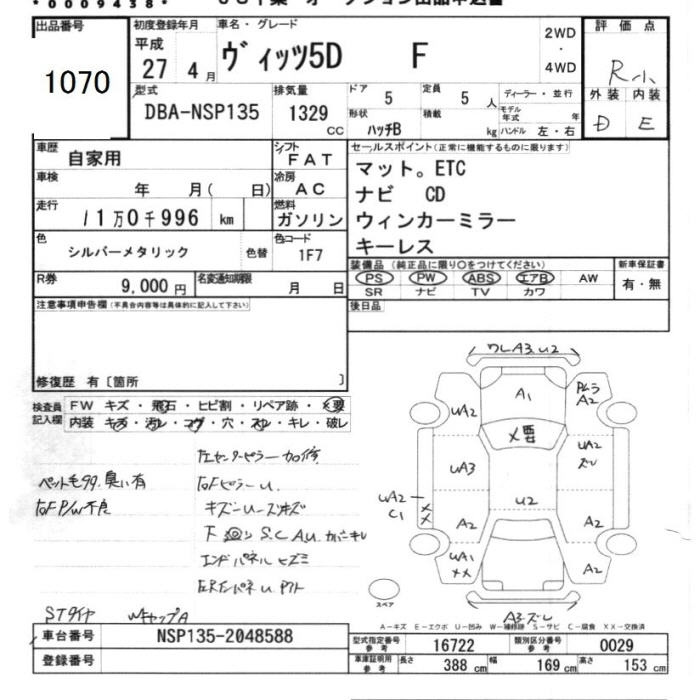 *0009438*
出品番号
1070
初度登録年月
平成
27年 4月
車名・グレード
ヴィッツ5D F
2WD
・
4WD
評価点
R小
外装 内装
D E
型式
DBA-NSP135
排気量
1329
CC
ドア
5
定員
5人
形状
ハッチB
積載
kg
ディーラー・並行
モデル年式 年
ハンドル 左・右
車歴
自家用
シフト
FAT
車検
年 月( 日)
冷房
AC
走行
11万0千996 km
燃料
ガソリン
色
シルバーメタリック
色替
色コード
1F7
R券
9,000円
名変通知期限
月 日
セールスポイント(正常に機能するものに限ります)
マット。ETC
ナビ CD
ウィンカーミラー
キーレス
装備品(純正品に限り○をつけてください)
PS PW ABS エアB AW
SR ナビ TV カワ
新車保証書
有・無
後日品
注意事項申告欄(不具合内容等は具体的に記入して下さい)
修復歴 有〔箇所 〕
検査員
記入欄
FW キズ・飛石・ヒビ割・リペア跡・×要
内装 キズ・汚レ・コゲ・穴・スレ・キレ・破レ
ペット毛 臭い有
P/W不良
左センターピラー
Fピラーu.
キズ
下 S.C A.u.
エンドパネル ヒズミ
STタイヤ
WキャップA
ワレA3.u2
A1
A2
uA2
×要
uA2
uA3
u2
uA2
C1
××
A2
A2
uA1
××
A2
A3
スペア
A-キズ E-エクボ U-凹み W-補修跡 S-サビ C-腐食 XX-交換済
車台番号
NSP135-2048588
登録番号
型式指定番号
参考
16722
類別区分番号
参考
0029
車庫証明用
参考
長さ
388 cm
幅
169 cm
高さ
153 cm